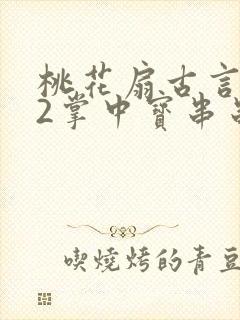 桃花扇古言
2掌中寶串
喫燒烤的青豆